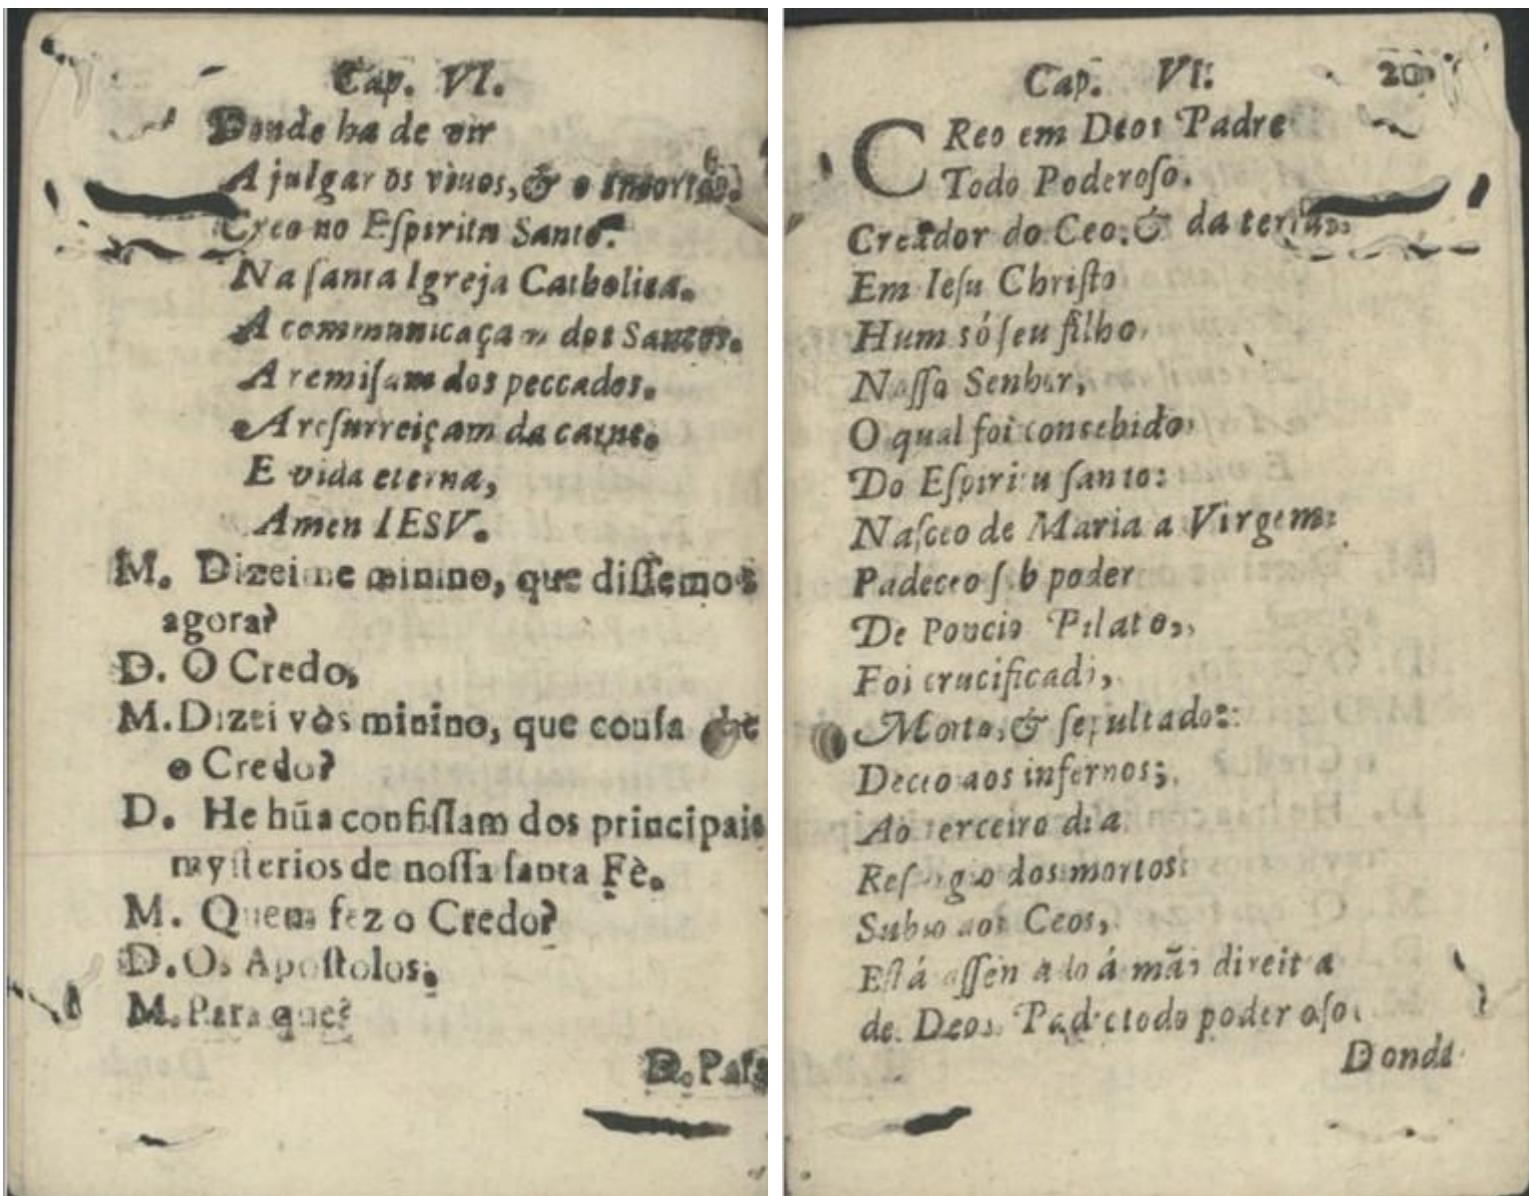 Cap. VI.
Donde ha de vir
A julgar os viuos, & o mortos.
Creo no Eſpiritu Santo.
Na ſanta Igreja Catholica.
A communicaçam dos Santos.
A remiſam dos peccados.
A reſurreiçam da carne.
E vida eterna,
Amen IESV.
M. Dizeime minino, que diſſemos
agora?
D. O Credo,
M. Dizei vòs minino, que couſa he
o Credo?
D. He hũa confiſſam dos principais
myſterios de noſſa ſanta Fè.
M. Quem fez o Credo?
D. Os Apoſtolos.
M. Para que?
D. Para
Cap. VI. 20
CReo em Deos Padre
Todo Poderoſo.
Creador do Ceo, & da terra:
Em Ieſu Chriſto
Hum só ſeu filho,
Noſſo Senhor,
O qual foi consebido
Do Eſpiritu ſanto:
Naſceo de Maria a Virgem:
Padeceo ſob poder
De Poncio Pilato,
Foi crucificado,
Morto, & ſepultado:
Deceo aos infernos;
Ao terceiro dia
Reſurgio dos mortos:
Subio aos Ceos,
Eſtá aſſentado á mão direita
de Deos Padre todo poderoſo.
Donde